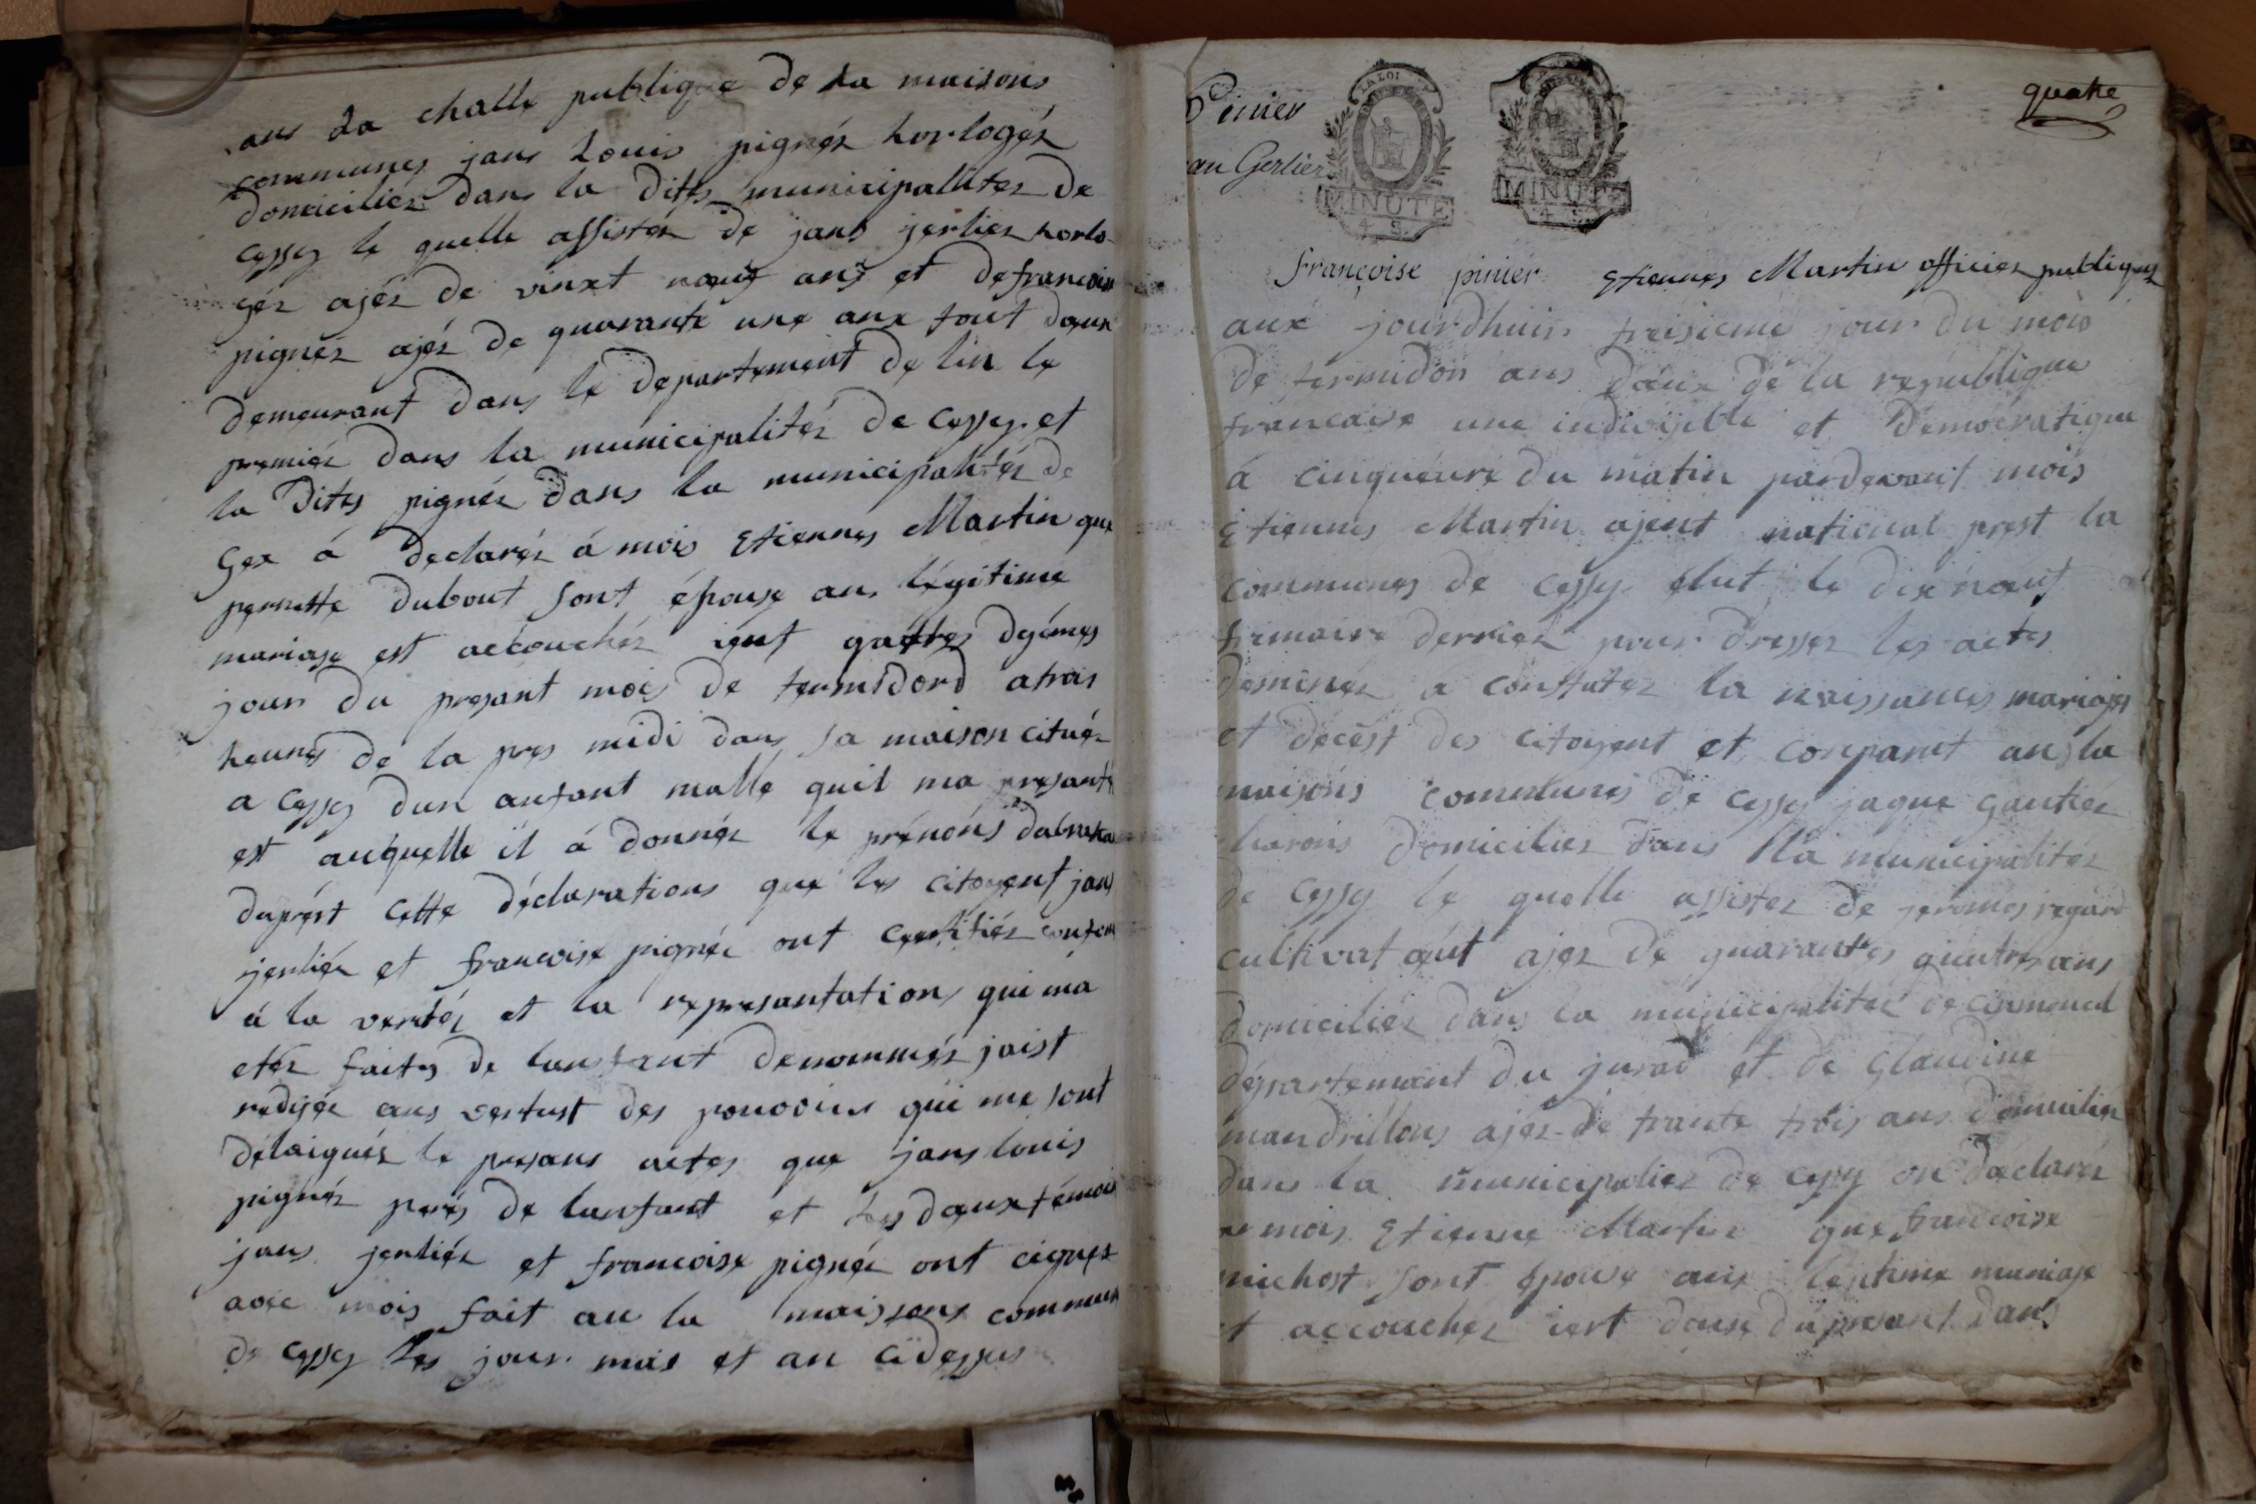 ans La challe publique de La maisons
communes jans Louis pignér horlogér
domiciliér dans la Dittes municipallitez de
Cessy le quelle assistér de jans jerlier horlo-
gér ajér de vinxt nœuf ans et de francoise
pignér ajér de quarante une ans tout daux
demeurant dans le departement de lin le
premiér dans la municipalitér de Cessy et
la Dites pignér dans la municipalitéz de
Gex á declarér á mois Etiennes Martin que
pernette dubout sont épouse an légitime
mariage est accouchér
jour du presant mois de termidord atrois
heures de la pres midi dans sa maison cituér
a Cessy dun anfant malle quil ma presanté
est auquelle il á donnér le prénons
daprést cette déclarations que les citoyent jans
jerliér et francoise pignér ont certifiér conforme
á la veritéz et la represantations qui má
etér faites de lanfant denommér jaist
redigér ans vertust des pouvoirs qui me sont
délaiguér le presans actes que jans louis
pignér perés de lanfant et les daux témoin
jans jerliér et francoise pignér ont cignér
avec mois fait an la maissons commune
de Cessy les jour mois et an cidessus
Pinier
an Gerlier
LA LOI
MINUTE
4 S.
MINUTE
4 S.
quatre
françoise pinier Etiennes Martin officier publique
aux jourdhuis treisieme jour du mois
de termidor ans daux de la republique
francaise une indivisible et Démocratique
á cinqueure du matin pardevant mois
Etiennes Martin ajent national prest la
communes de Cessy élut le dix nœuf
frimaire derrier pour dresser les actes
destinér a constater la naissances mariajes
et decést des citoyent et conparut an la
maisons communes de Cessy jaque gautiér
charons domicilier dans lla municipalitér
de Cessy le quelle assister de jeromes regard
cultivat aut ajer de quarantes quatres ans
domicilier dans la municipalitér de
département du jurad et de Glaudine
mandrillons ajer de trante trois ans domicilier
dans la municipalier de Cessy on declarér
a mois Etienne Martin que francoise
michost sont épouse an lentime mariage
et accoucher iert douse du presant dans